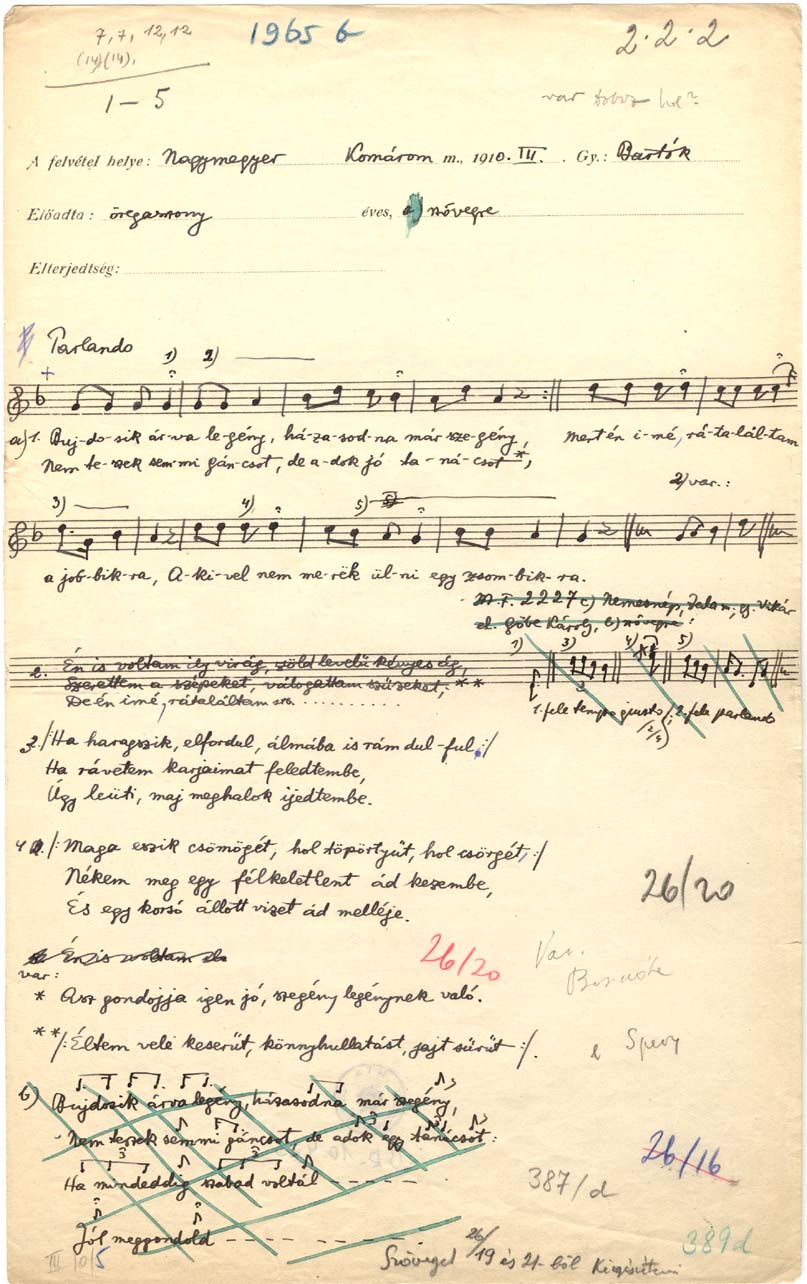 7, 7, 12, 12
(14)(14),
1965 b
2·2·2
1–5
var
A felvétel helye: Nagymegyer Komárom m., 1910. III. Gy.: Bartók
Előadta: öregasszony éves, a) szövegre
Elterjedtség:
Parlando
1) 2)
a) 1. Buj-do-sik ár-va le-gény, há-za-sod-na már sze-gény, mert én i-mé, rá-ta-lál-tam
Nem te-szek sem-mi gán-csot, de a-dok jó ta-ná-csot*,
2) var.:
3) 4) 5)
a job-bik-ra, A-ki-vel nem me-rëk ül-ni egy zsom-bik-ra.
M. F. 2227 c) Nemesnép, Zala m.; gy. Vikár
el. Göbe Károly, b) szövegre:
1) 3) 4) 5)
2. Én is voltam ily virág, zöld levelü kényesség,
Szerettem a szépeket, válogattam szüzeket; **
De én imé, rátaláltam stb. ..........
1. fele tempo giusto, 2. fele parlando
(2/4)
3. /: Ha haragszik, elfordul, álmába is rám dul-ful :/
Ha rávetem karjaimat feledtembe,
Úgy leüti, maj meghalok ijedtembe.
4. /: Maga eszik csömögét, hol töpörtyűt, hol csörgét, :/
Nékem meg egy félkeletlent ád kezembe,
És egy korsó állott vizet ád melléje.
26/20
Én is voltam
26/20
Var.
var:
* Asz gondojja igen jó, szegény legénynek való.
** /: Éltem velë keserűt, könnyhullatást, jajt sűrűt :/.
b) Bujdosik árva legény, házasodna már szegény,
Nem teszek semmi gáncsot, de adok egy tanácsot:
Ha mindeddig szabad voltál – – – – –
26/16
387/d
Jól meggondold – – – – – – – –
389d
III /0/5
Szöveget 26/19 és 21-ből kiegészíteni